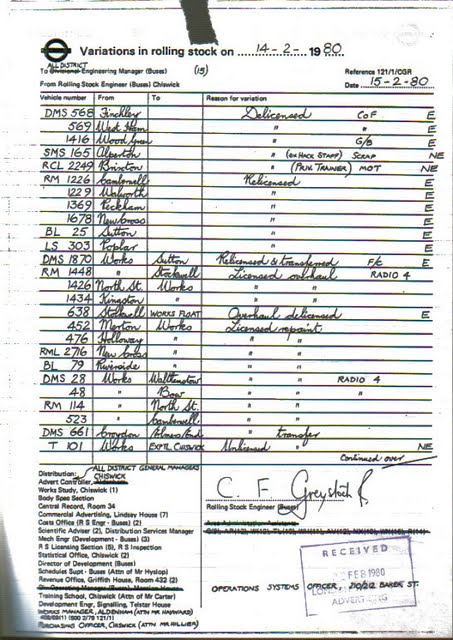 Variations in rolling stock on 14-2- 1980
ALL DISTRICT
To Divisional Engineering Manager (Buses) (15) Reference 121/1/CGR
From Rolling Stock Engineer (Buses) Chiswick Date 15-2-80
Vehicle number From To Reason for variation
DMS 568 Finchley Delicensed CoF E
569 West Ham " " E
1416 Wood Green " G/B E
SMS 165 Alperton " (ex HACK STAFF) SCRAP NE
RCL 2249 Brixton " (P.W. TRAINER) MOT NE
RM 1226 Camberwell Relicensed E
1229 Walworth " E
1369 Peckham " E
1678 New Cross " E
BL 25 Sutton " E
LS 303 Poplar " E
DMS 1870 Works Sutton Relicensed & transferred F/C E
RM 1448 " Stockwell Licensed overhaul RADIO 4
1426 North St. Works " "
1434 Kingston " " "
638 Stockwell WORKS FLOAT Overhaul delicensed E
452 Merton Works Licensed repaint
476 Holloway " " "
RML 2716 New Cross " " "
BL 79 Riverside " " "
DMS 28 Works Walthamstow " " RADIO 4
48 " Bow " " "
RM 114 " North St. " "
523 " Camberwell " "
DMS 661 Croydon " transfer
T 101 Works EXPTL CHISWICK Unlicensed " NE
Continued over
Distribution: ALL DISTRICT GENERAL MANAGERS
Advert Controller, CHISWICK
Works Study, Chiswick (1)
Body Spes Section
Central Record, Room 34
Commercial Advertising, Lindsey House (7)
Costs Office (R S Engr - Buses) (2)
Scientific Adviser (2), Distribution Services Manager
Mech Engr (Development) (3)
RS Licensing Section (5), RS Inspection
Statistical Office, Chiswick (2)
Director of Development (Buses)
Schedules Supt - Buses (Attn of Mr Hyslop)
Revenue Office, Griffith House, Room 432 (2)
Training School, Chiswick (Attn of Mr Carter)
Development Engr, Signalling, Telstar House
WORKS MANAGER, ALDENHAM (ATTN MR HAYWARD)
PURCHASING OFFICER, CHISWICK (ATTN MR HILLIER)
C. F. Greystock
Rolling Stock Engineer (Buses)
OPERATIONS SYSTEMS OFFICER, 210/212 BAKER ST.
RECEIVED
FEB 1980
ADVERTISING